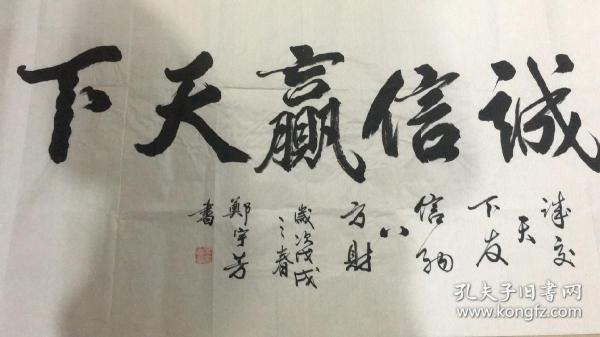 诚信赢天下
诚交
天
下友
信纳
八
方财
岁次戊戌
之春
鄭宇芳
書
孔夫子旧書网
www.kongfz.com